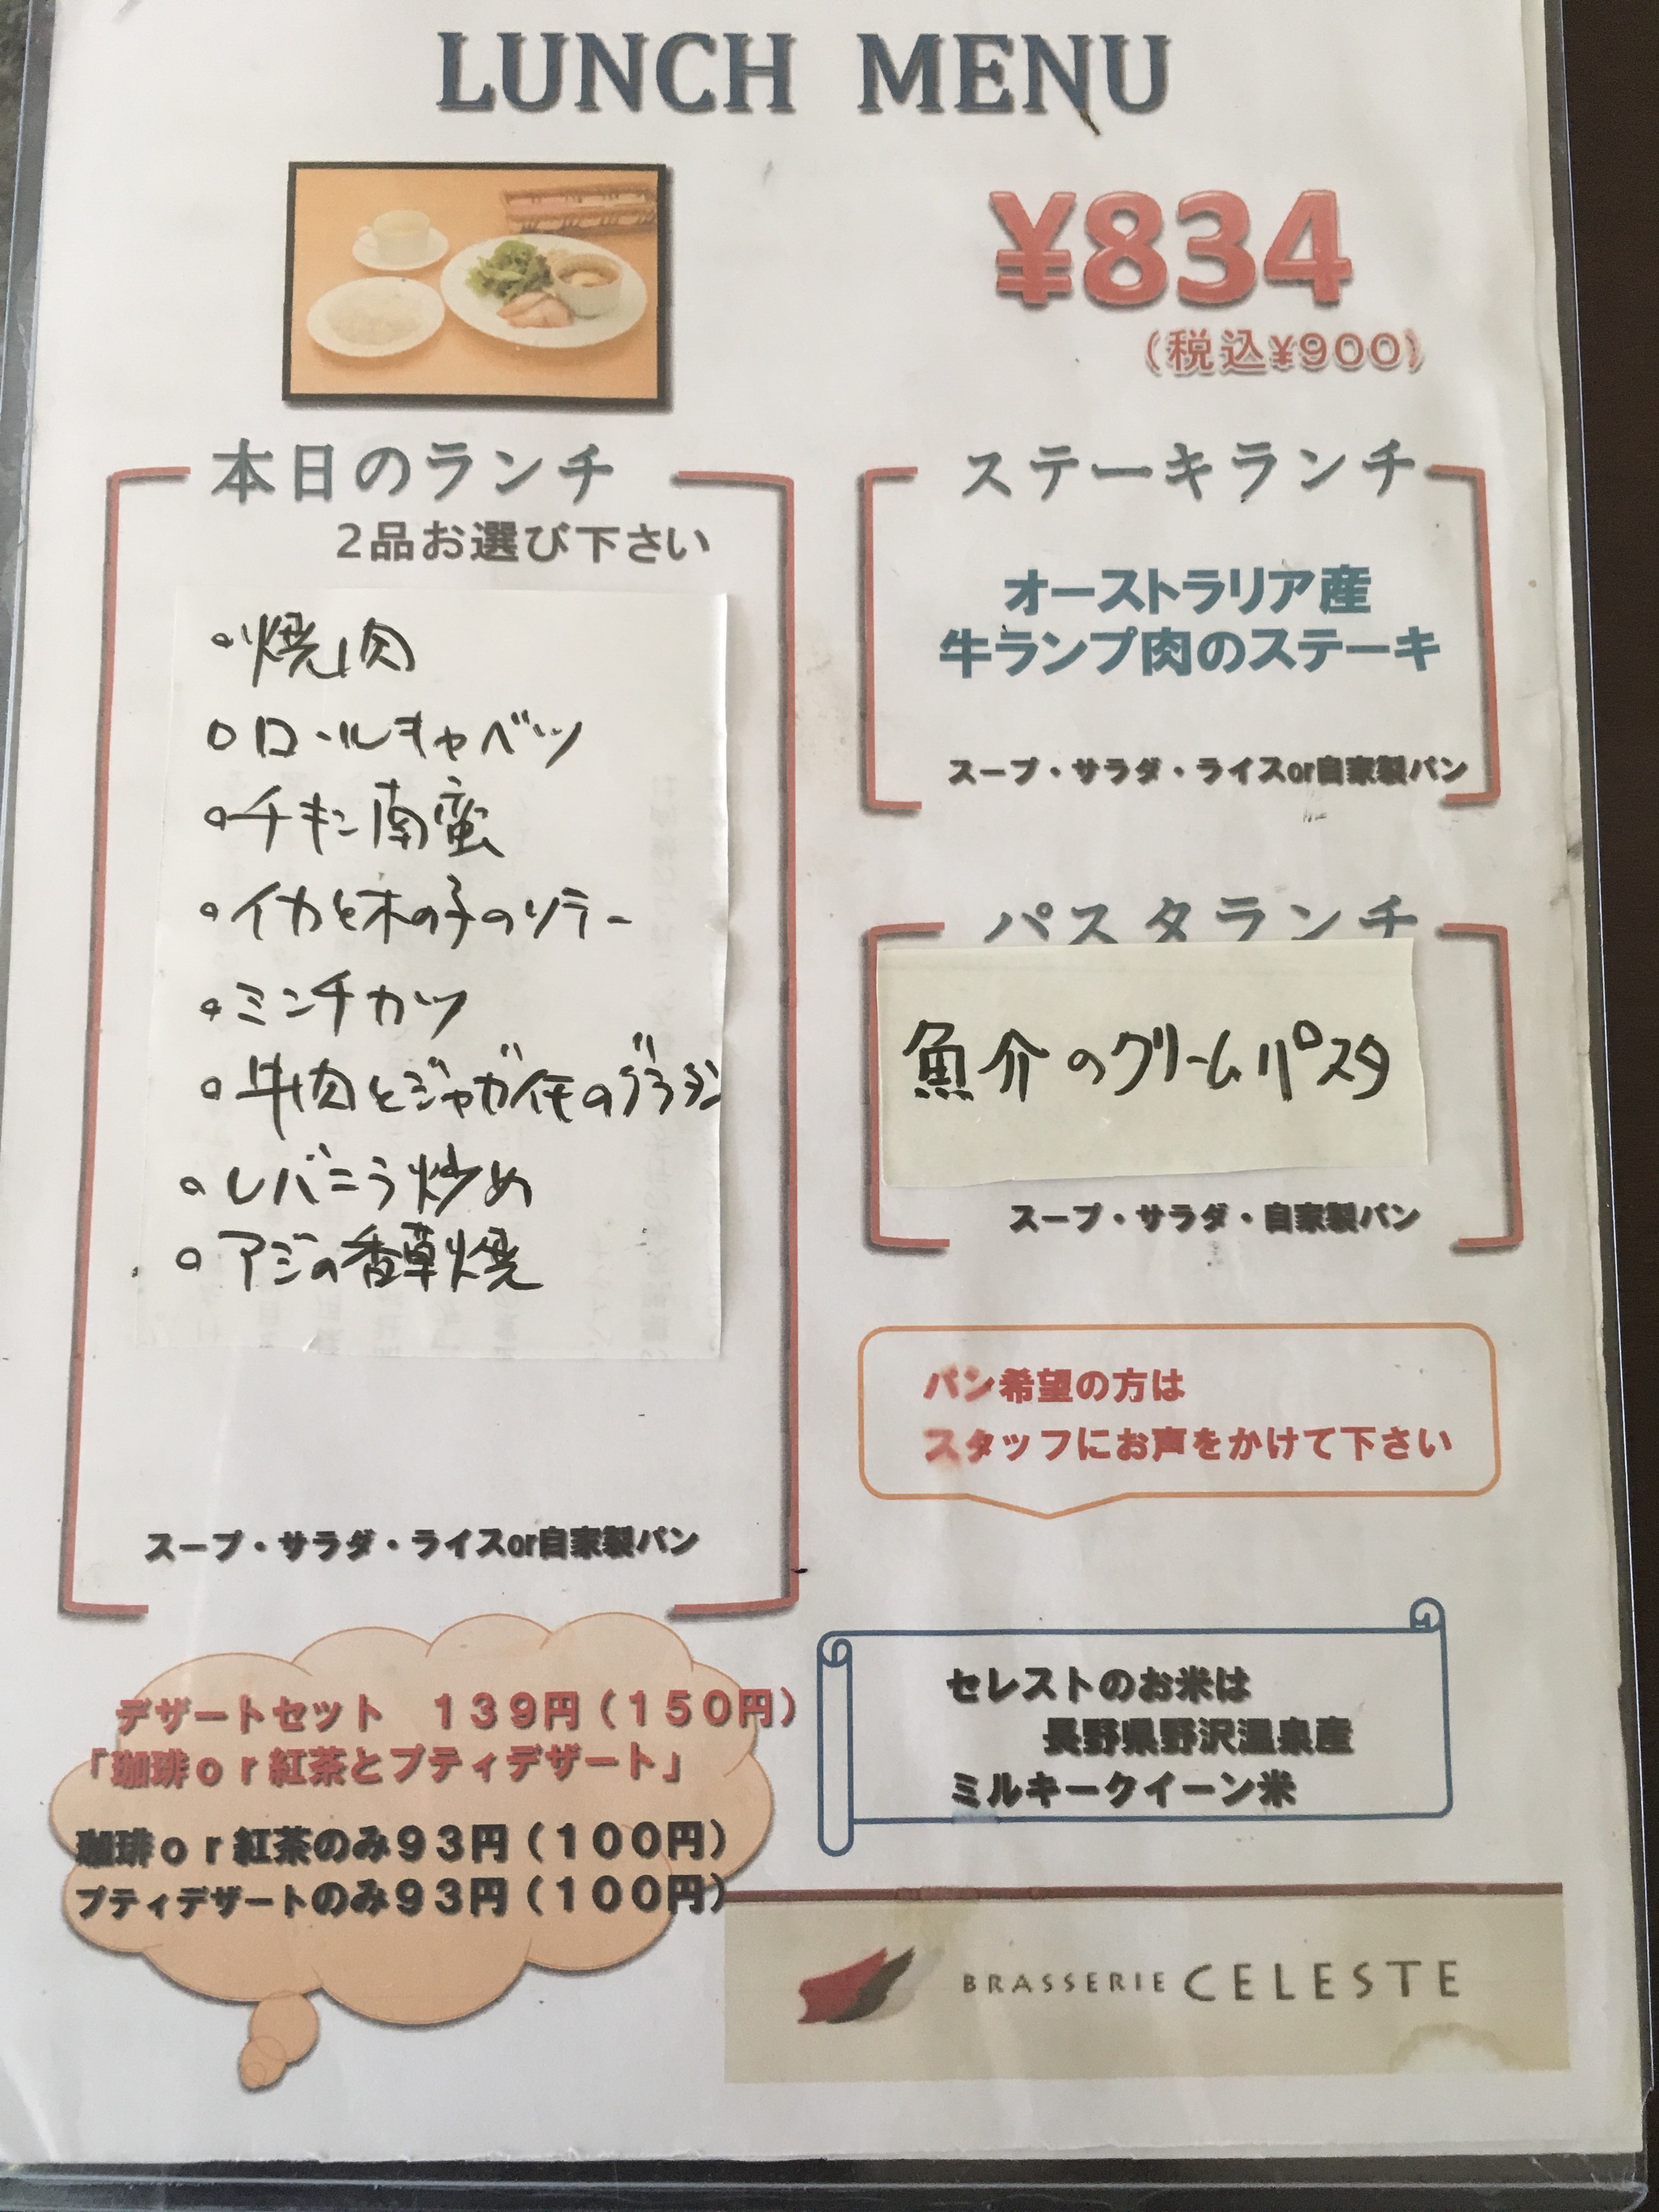 LUNCH MENU
¥834
(税込¥900)
本日のランチ
2品お選び下さい
焼肉
ロールキャベツ
チキン南蛮
イカと木の子のソテー
ミンチカツ
牛肉とジャガ芋のグラタン
レバニラ炒め
アジの香草焼
スープ・サラダ・ライスor自家製パン
ステーキランチ
オーストラリア産
牛ランプ肉のステーキ
スープ・サラダ・ライスor自家製パン
パスタランチ
魚介のクリームパスタ
スープ・サラダ・自家製パン
パン希望の方は
スタッフにお声をかけて下さい
デザートセット　139円(150円)
「珈琲or紅茶とプティデザート」
珈琲or紅茶のみ93円(100円)
プティデザートのみ93円(100円)
セレストのお米は
長野県野沢温泉産
ミルキークイーン米
BRASSERIE CELESTE